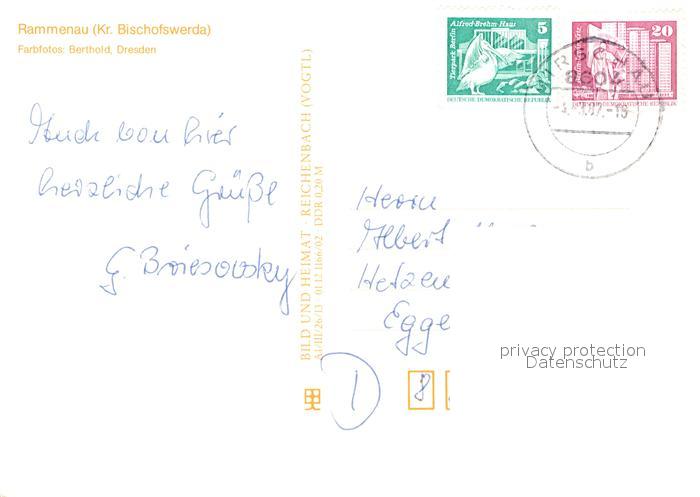 Rammenau (Kr. Bischofswerda)
Farbfotos: Berthold, Dresden
Auch von hier
herzliche Grüße
G. Briesovsky
BILD UND HEIMAT · REICHENBACH (VOGTL)
A1/III/26/13 · 01 12 1166/02 DDR 0,20 M
Tierpark Berlin
Alfred-Brehm-Haus
5
DEUTSCHE DEMOKRATISCHE REPUBLIK
20
DEUTSCHE DEMOKRATISCHE REPUBLIK
b
Herrn
Albert
Hetzen
Egge
D
8
privacy protection
Datenschutz